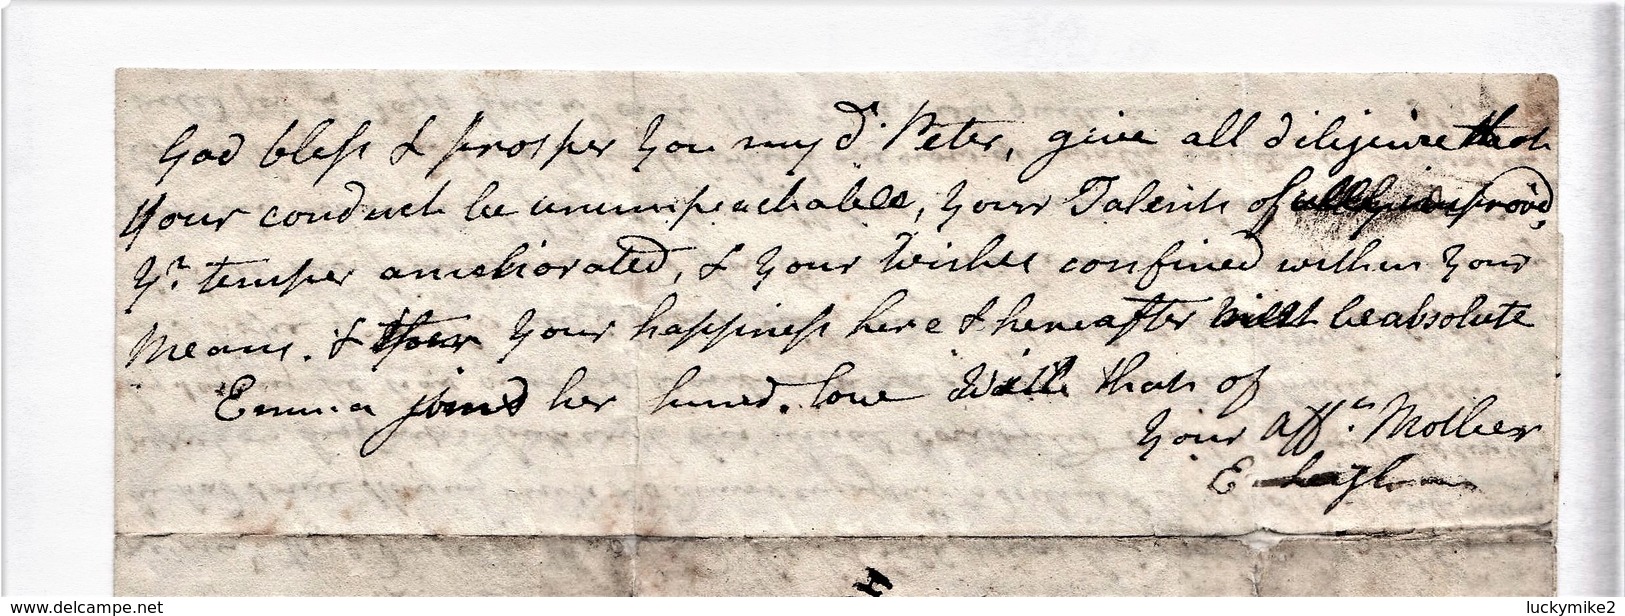 God bless & prosper You my dr. Peter, give all diligence that
Your conduct be unimpeachable, Your Talents fully improv'd,
Yr. temper ameliorated, & Your Wishes confined within Your
Means. & Your happiness here & hereafter will be absolute
Emma joins her love with that of
Your affte. Mother
E
www.delcampe.net
luckymike2